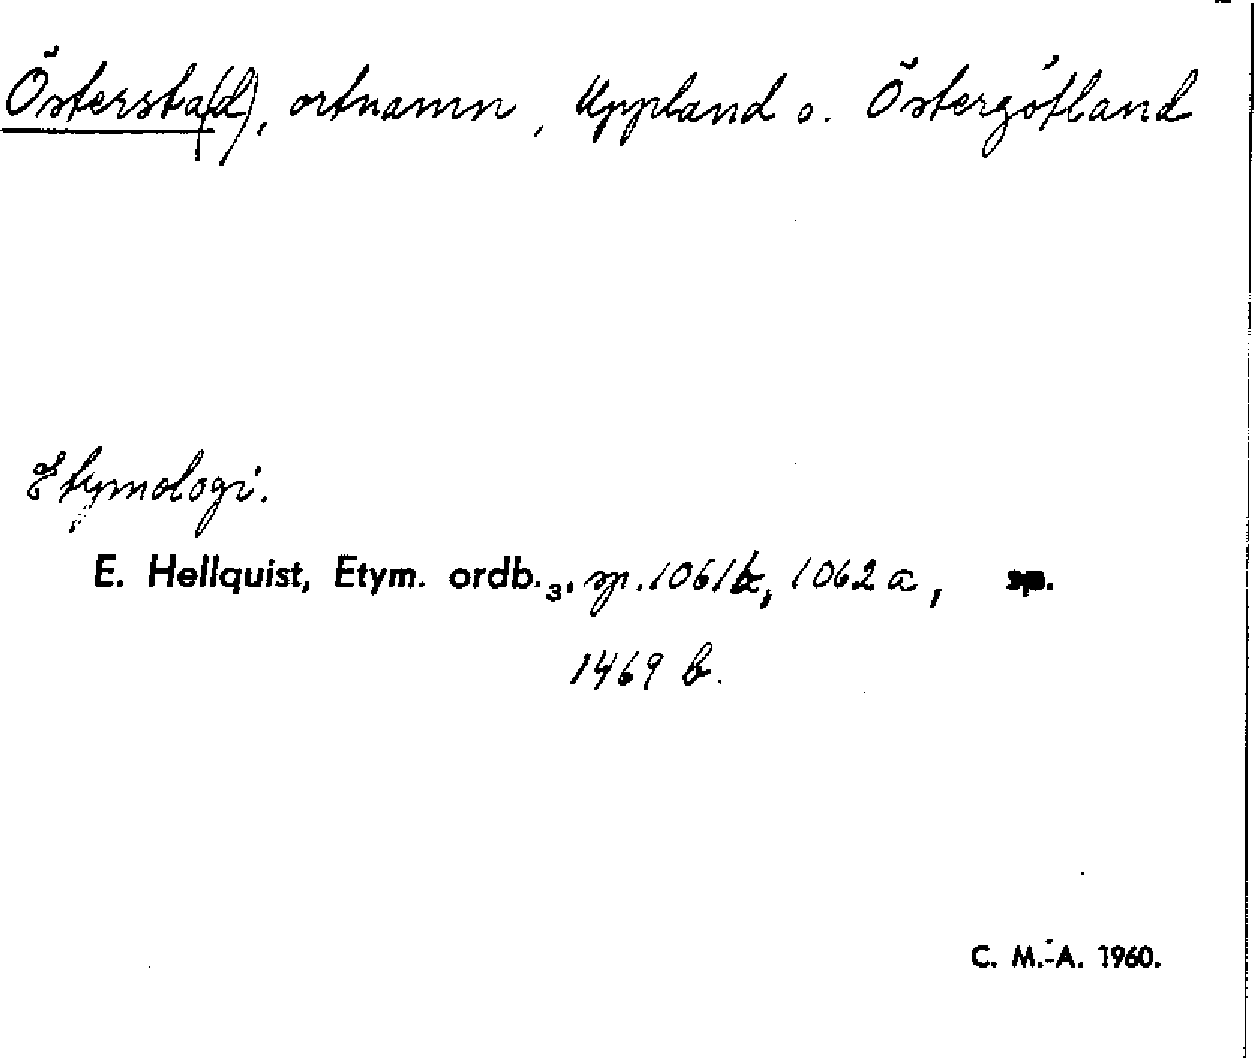 Östersta(d), ortnamn, Uppland o. Östergötland
Etymologi.
E. Hellquist, Etym. ordb.₃, sp. 1061 b, 1062 a, sp.
1469 b.
C. M.-A. 1960.